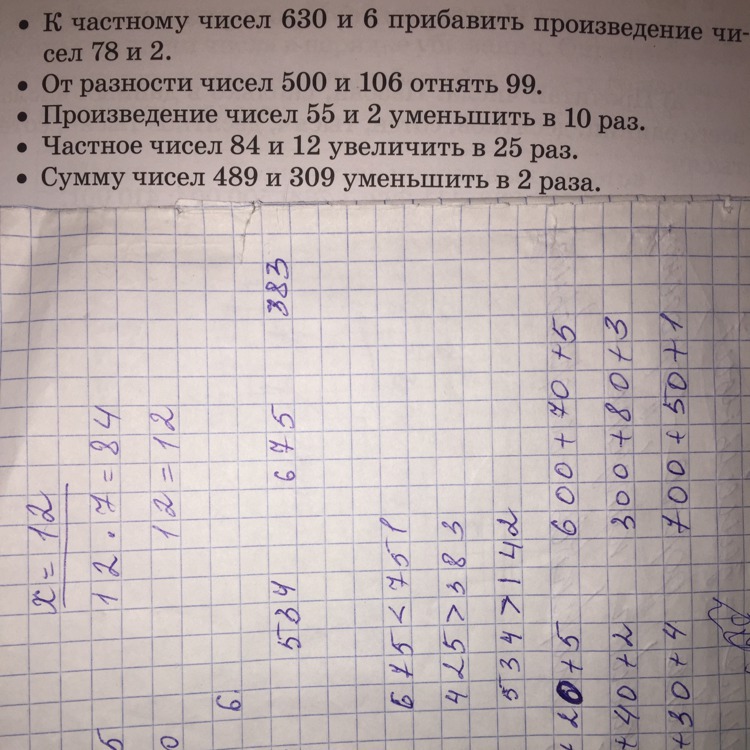 • К частному чисел 630 и 6 прибавить произведение чи-
сел 78 и 2.
• От разности чисел 500 и 106 отнять 99.
• Произведение чисел 55 и 2 уменьшить в 10 раз.
• Частное чисел 84 и 12 увеличить в 25 раз.
• Сумму чисел 489 и 309 уменьшить в 2 раза.
x = 12
12 · 7 = 84
12 = 12
6.
534 675 383
675 < 751
425 > 383
534 > 142
20 + 5 600 + 70 + 5
+ 40 + 2 300 + 80 + 3
+ 30 + 4 700 + 50 + 1